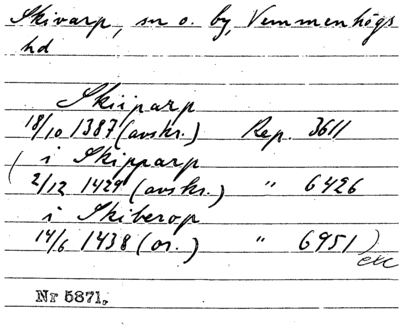 Skivarp, sn o. by, Vemmenhögs
hd
Skiiparp
18/10 1387 (avskr.) Rep. 3611
(i Skipparp
2/12 1429 (avskr.) " 6426
i Skiberop
14/6 1438 (or.) " 6951)
exc
Nr 5871.